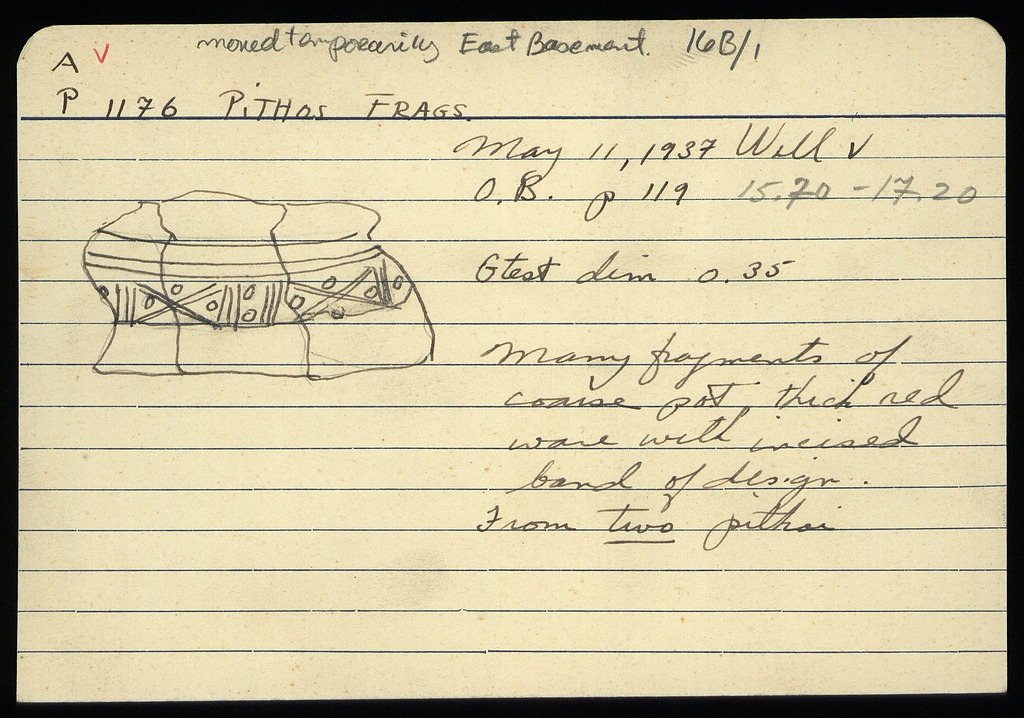 moved temporarily East Basement. 16B/1
A V
P 1176 PITHOS FRAGS.
May 11, 1937 Well V
O.B. p 119 15.70 - 17.20
Gtest dim 0.35
Many fragments of
coarse pot, thick red
ware with incised
band of design.
From two pithoi